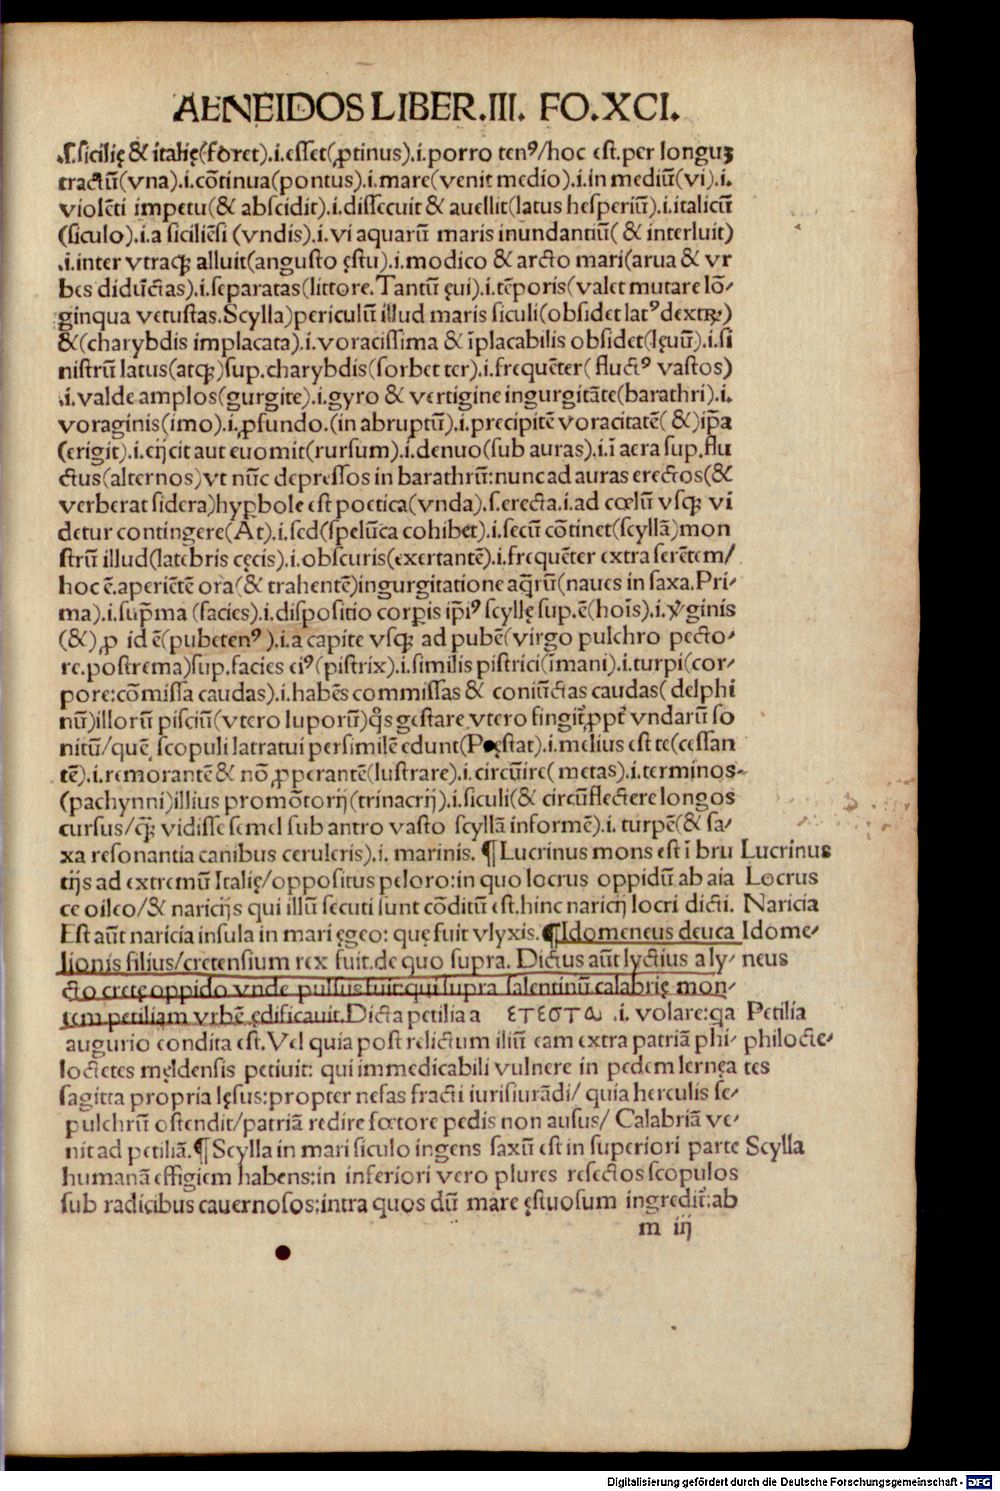 AENEIDOS LIBER.III. FO.XCI.
.ſ.ſicilię & italię(foret).i.eſſet(ꝓtinus).i.porro tenꝰ/hoc eſt.per longuꝫ
tractū(vna).i.cōtinua(pontus).i.mare(venit medio).i.in mediū(vi).i.
violēti impetu(& abſcidit).i.diſſecuit & auellit(latus heſperiū).i.italicū
(ſiculo).i.a ſiciliēſi (vndis).i.vi aquarū maris inundantiū( & interluit)
.i.inter vtraqꝫ alluit(anguſto ęſtu).i.modico & arcto mari(arua & vr
bes diductas).i.ſeparatas(littore.Tantū ęui).i.tēporis(valet mutare lō-
ginqua vetuſtas.Scylla)periculū illud maris ſiculi(obſidet latꝰ dextrꝫ)
&(charybdis implacata).i.voraciſſima & īplacabilis obſidet(lęuū).i.ſi
niſtrū latus(atqꝫ)ſup.charybdis(ſorbet ter).i.frequēter( fluctꝰ vaſtos)
.i.valde amplos(gurgite).i.gyro & vertigine ingurgitāte(barathri).i.
voraginis(imo).i.ꝓfundo.(in abruptū).i.precipitē voracitatē( &)ip̄a
(erigit).i.erijcit aut euomit(rurſum).i.denuo(ſub auras).i.ī aera ſup.flu
ctus(alternos)vt nūc depreſſos in barathrū:nunc ad auras erectos(&
verberat ſidera)hyꝑbole eſt poetica(vnda).ſ.erecta.i.ad cœlū vſqꝫ vi
detur contingere(At).i.ſed(ſpelūca cohibet).i.ſecū cōtinet(ſcyllā)mon
ſtrū illud(latebris cęcis).i.obſcuris(exertantē).i.frequēter extra ſerētem/
hoc ē.aperiētē ora(& trahentē)ingurgitatione aq̄rū(naues in ſaxa.Pri-
ma).i.ſup̄ma (facies).i.diſpoſitio corꝑis ip̄iꝰ ſcyllę ſup.ē(hoīs).i.v̓ginis
(&)ꝓ id ē(pubetenꝰ ).i.a capite vſqꝫ ad pubē(virgo pulchro pecto-
re.poſtrema)ſup.facies eiꝰ(piſtrix).i.ſimilis piſtrici(īmani).i.turpi(cor-
pore:cōmiſſa caudas).i.habēs commiſſas & coniūctas caudas( delphi
nū)illorū piſciū(vtero luporū)q̄s geſtare vtero fingit̄ ꝓpt̄ vndarū ſo
nitū/quē ſcopuli latratui perſimilē edunt(Pręſtat).i.melius eſt te(ceſſan
tē).i.remorantē & nō ꝓperantē(luſtrare).i.circūire( metas).i.terminos-
(pachynni)illius promōtorij(trinacrij).i.ſiculi(& circūflectere longos
curſus/q̄ꝫ vidiſſe ſemel ſub antro vaſto ſcyllā informē).i. turpē(& ſa-
xa reſonantia canibus ceruleris).i. marinis. ¶Lucrinus mons eſt ī bru Lucrinus
tijs ad extremū Italię/oppoſitus peloro:in quo locrus oppidū ab aia Locrus
ce oileo/& naricijs qui illū ſecuti ſunt cōditū eſt.hinc naricij locri dicti. Naricia
Eſt aūt naricia inſula in mari ęgeo: quę fuit vlyxis.¶Idomeneus deuca Idome-
lionis filius/cretenſium rex fuit.de quo ſupra. Dictus aūt lyctius a ly- neus
cto cretę oppido vnde pulſus fuit:qui ſupra ſalentinū calabrię mon-
tem petiliam vrbē ędificauit.Dicta petilia a ετεσταω .i. volare:qa Petilia
augurio condita eſt.Vel quia poſt relictum iliū eam extra patriā phi- philocte-
loctetes męldenſis petiuit: qui immedicabili vulnere in pedem lernęa tes
ſagitta propria lęſus:propter nefas fracti iuriſiurādi/ quia herculis ſe-
pulchrū oſtendit/patriā redire fœtore pedis non auſus/ Calabriā ve-
nit ad petiliā.¶Scylla in mari ſiculo ingens ſaxū eſt in ſuperiori parte Scylla
humanā effigiem habens:in inferiori vero plures reſectos ſcopulos
ſub radicibus cauernoſos:intra quos dū mare ęſtuoſum ingredit̄:ab
m iij
Digitalisierung gefördert durch die Deutsche Forschungsgemeinschaft - DFG